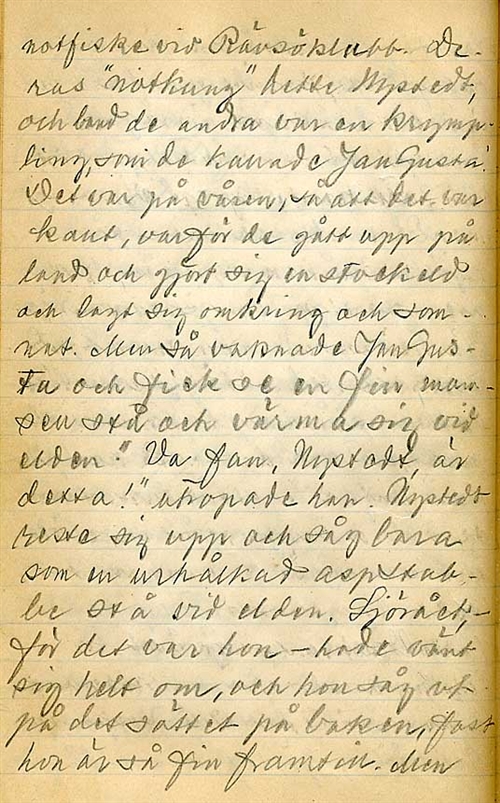 notfiske vid Rävsöklubb. De-
ras "notkung" hette Nystedt,
och bland de andra var en krymp-
ling, som de kallade Jan Gusta'.
Det var på våren, så att det var
kallt, varför de gått upp på
land och gjort sig en stockeld
och lagt sig omkring och som-
nat. Men så vaknade Jan Gus-
ta och fick se en fin mam-
sell stå och värma sig vid
elden. "Va fan, Nystedt, är
detta!" utropade han. Nystedt
reste sig upp och såg bara
som en urhålkad aspstub-
be stå vid elden. Sjörået, -
för det var hon - hade vänt
sig helt om, och hon såg ut
på det sättet på baken, fast
hon är så fin framtill. Men